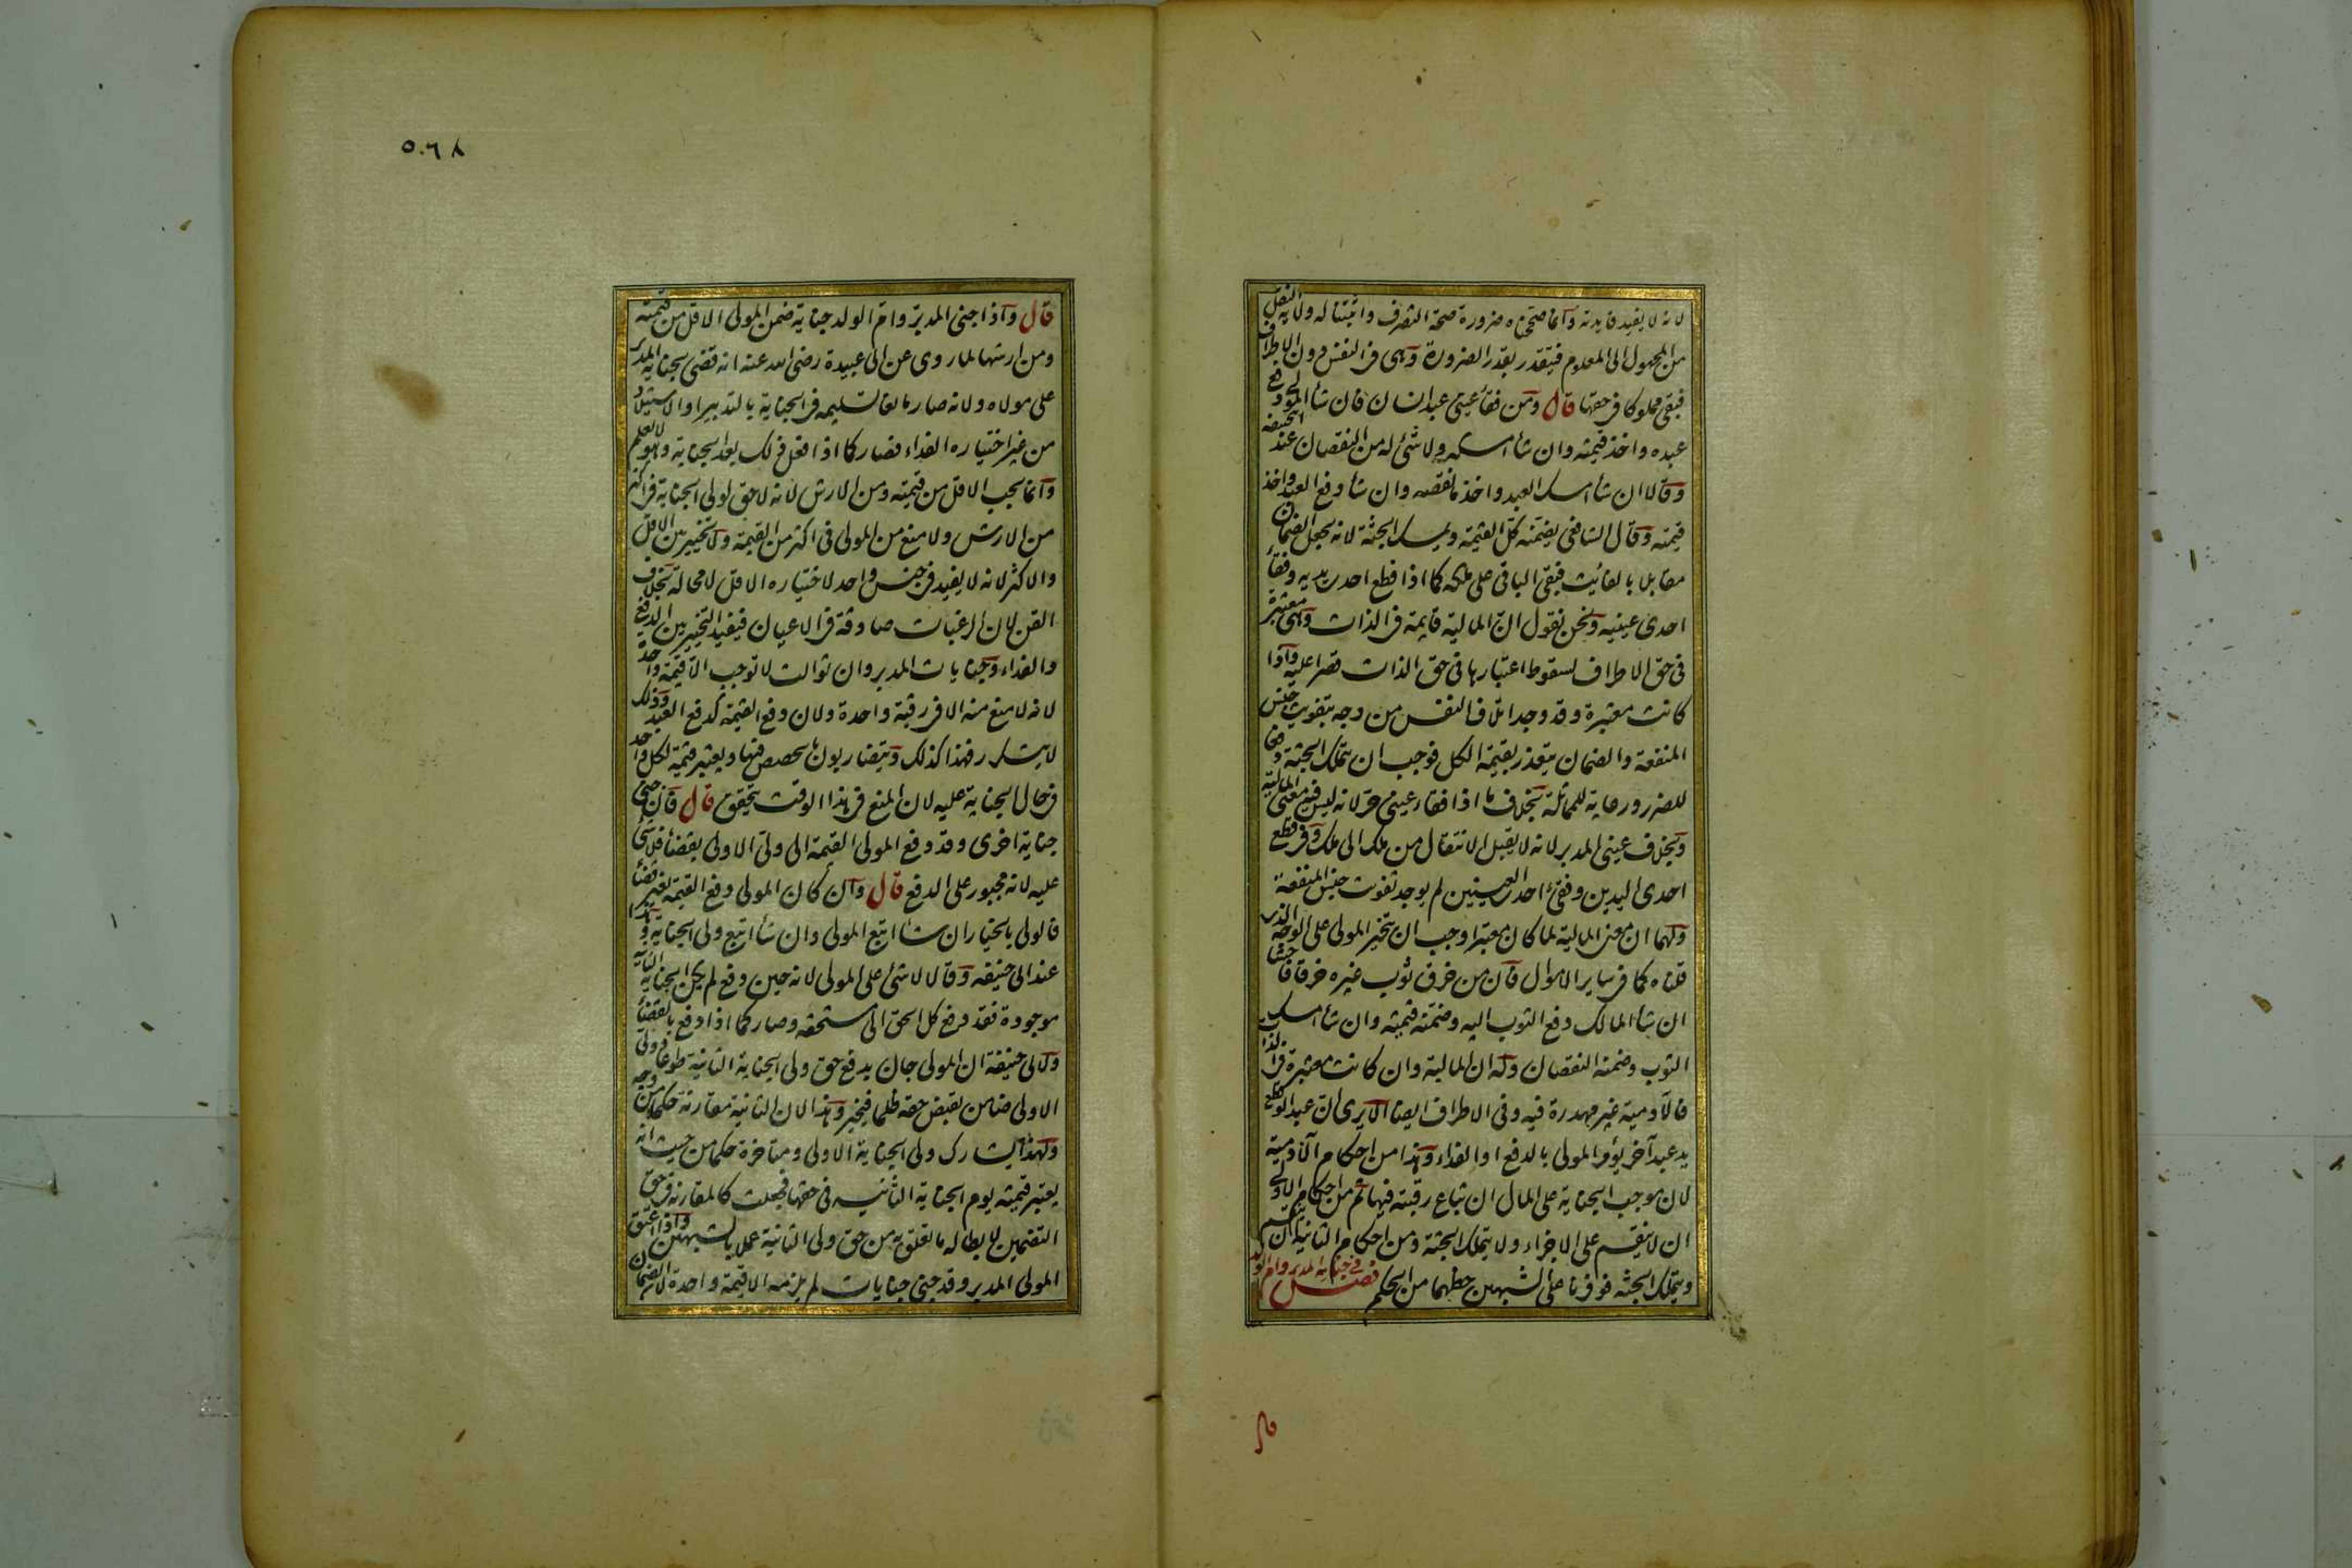 لانه لا يفيد فايدته وانما صححناه ضرورة صحة التصرف واثبتنا له ولاية النقل
من المجهول الى المعلوم فيتقدر بقدر الضرورة وهى فى النفس دون الاطراف
فبقى مملوكا فى حقها قال ومن فقأ عينى عبد انسان فان شاء المولى دفع
عبده واخذ قيمته وان شاء امسكه ولا شئ له من النقصان عند ابى حنيفة
وقالا ان شاء امسك العبد واخذ ما نقصه وان شاء دفع العبد واخذ
قيمته وقال الشافعى يضمنه كل القيمة ويمسك الجثة لانه يجعل الضمان
مقابلا بالفائت فبقى الباقى على ملكه كما اذا قطع احدى يديه وفقأ
احدى عينيه ونحن نقول ان المالية قايمة فى الذات وهى معتبرة
فى حق الاطراف لسقوط اعتبارها فى حق الذات قصرا عليه واذا
كانت معتبرة وقد وجد اتلاف النفس من وجه بتفويت جنس
المنفعة والضمان يتقدر بقيمة الكل فوجب ان يتملك الجثة دفعا
للضرر ورعاية للمماثلة بخلاف ما اذا فقاء عينى حر لانه ليس فيه معنى المالية
وبخلاف عينى المدبر لانه لا يقبل الانتقال من ملك الى ملك وفى قطع
احدى اليدين وفقئ احدى العينين لم يوجد تفويت جنس المنفعة
ولهما ان معنى المالية لما كان معتبرا وجب ان يتخير المولى على الوجه الذى
قلناه كما فى ساير الاموال فان من خرق ثوب غيره خرقا فاحشا
ان شاء المالك دفع الثوب اليه وضمنه قيمته وان شاء امسك
الثوب وضمنه النقصان وله ان المالية وان كانت معتبرة فى الذات
فالآدمية غير مهدرة فيه وفى الاطراف ايضا الا يرى ان عبدا لو قطع
يد عبد آخر يؤمر المولى بالدفع او الفداء وهذا من احكام الآدمية
لان موجب الجناية على المال ان تباع رقبته فيها ثم من احكام الاولى
ان لا ينقسم على الاجزاء ولا يتملك الجثة ومن احكام الثانية ان ينقسم
ويتملك الجثة فوفرنا على الشبهين حظهما من الحكم فصل فى جناية المدبر وام الولد
قال
٥٠٦٨
قال واذا جنى المدبر وام الولد جناية ضمن المولى الاقل من قيمته
ومن ارشها لما روى عن ابى عبيدة رضى الله عنه انه قضى بجناية المدبر
على مولاه ولانه صار مانعا تسليمه فى الجناية بالتدبير او الاستيلاد
من غير اختياره الفداء فصار كما اذا فعل ذلك بعد الجناية وهو لا يعلم
وانما يجب الاقل من قيمته ومن الارش لانه لا حق لولى الجناية فى اكثر
من الارش ولا منع من المولى فى اكثر من القيمة ولا تخيير بين الاقل
والاكثر لانه لا يفيد فى جنس واحد لاختياره الاقل لا محالة بخلاف
القن لان الرغبات صادقة فى الاعيان فيفيد التخيير بين الدفع
والفداء وجنايات المدبر وان توالت لا توجب الا قيمة واحدة
لانه لا منع منه الا فى رقبة واحدة ولان دفع القيمة كدفع العبد وذلك
لا يتكرر فهذا كذلك ويتضاربون بالحصص فيها ويعتبر قيمته لكل واحد
فى حال الجناية عليه لان المنع فى هذا الوقت يتحقق قال فان جنى
جناية اخرى وقد دفع المولى القيمة الى ولى الاولى بقضاء فلا شئ
عليه لانه مجبور على الدفع قال وان كان المولى دفع القيمة بغير قضاء
فالولى بالخيار ان شاء اتبع المولى وان شاء اتبع ولى الجناية وهذا
عند ابى حنيفه وقالا لا شئ على المولى لانه حين دفع لم يكن الجناية الثانية
موجودة فقد دفع كل الحق الى مستحقه وصار كما اذا دفع بالقضاء
ولابى حنيفة ان المولى جان بدفع حق ولى الجناية الثانية طوعا وولى
الاولى ضامن بقبض حقه ظلما فيخير وهذا لان الثانية مقارنة حكما من وجه
ولهذا يشارك ولى الجناية الاولى ومتاخرة حكما من حيث انه
يعتبر قيمته يوم الجناية الثانية فى حقها فجعلت كالمقارنة فى حق
التضمين لابطاله ما تعلق به من حق ولى الثانية عملا بالشبهين واذا اعتق
المولى المدبر وقد جنى جنايات لم يلزمه الا قيمة واحدة لان الضمان